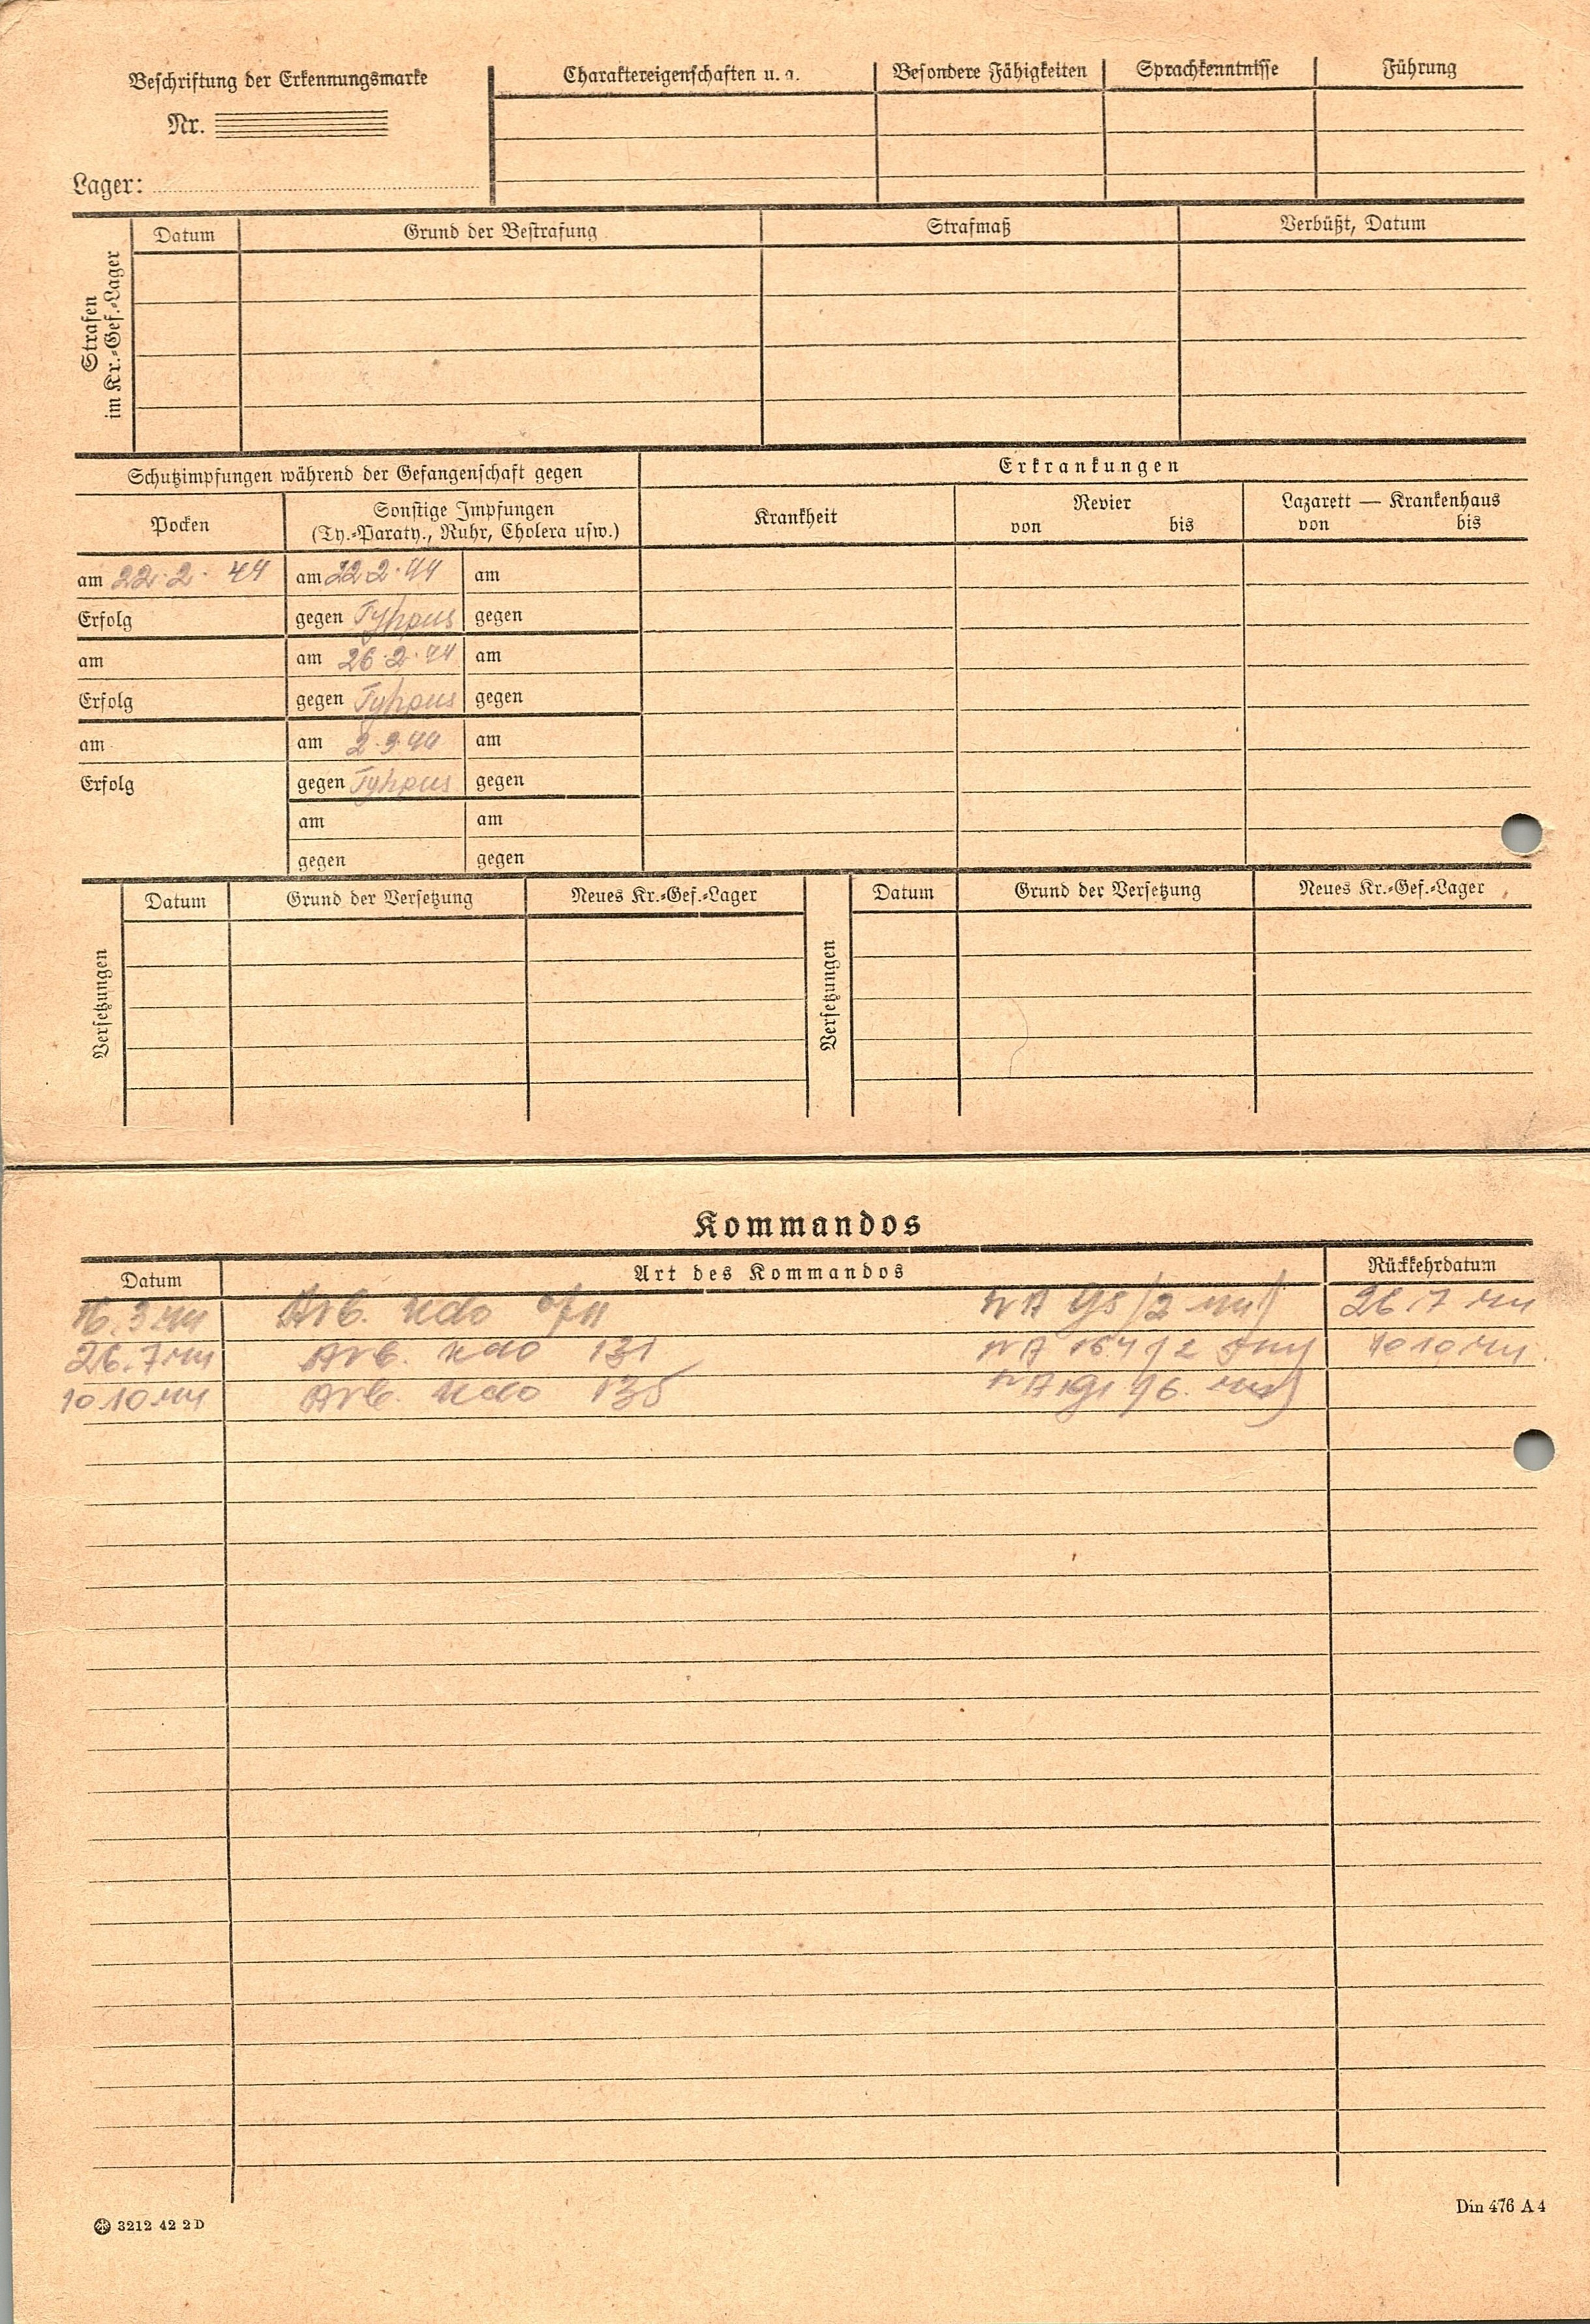 Beschriftung der Erkennungsmarke
Nr.
Lager:
Charaktereigenschaften u. a.
Besondere Fähigkeiten
Sprachkenntnisse
Führung
Strafen
im Kr.-Gef.-Lager
Datum
Grund der Bestrafung
Strafmaß
Verbüßt, Datum
Schutzimpfungen während der Gefangenschaft gegen
Erkrankungen
Pocken
Sonstige Impfungen
(Ty.-Paraty., Ruhr, Cholera usw.)
Krankheit
Revier
von bis
Lazarett — Krankenhaus
von bis
am 22.2.44 am 22.2.44 am
Erfolg gegen Tyhpus gegen
am am 26.2.44 am
Erfolg gegen Tyhpus gegen
am am 2.3.44 am
Erfolg gegen Tyhpus gegen
am am
gegen gegen
Versetzungen
Datum Grund der Versetzung Neues Kr.-Gef.-Lager
Versetzungen
Datum Grund der Versetzung Neues Kr.-Gef.-Lager
Kommandos
Datum Art des Kommandos Rückkehrdatum
16.3.44 Arb. Kdo 26.7.44
26.7.44 Arb. Kdo 131 10.10.44
10.10.44 Arb. Kdo 135
3212 42 2 D
Din 476 A 4